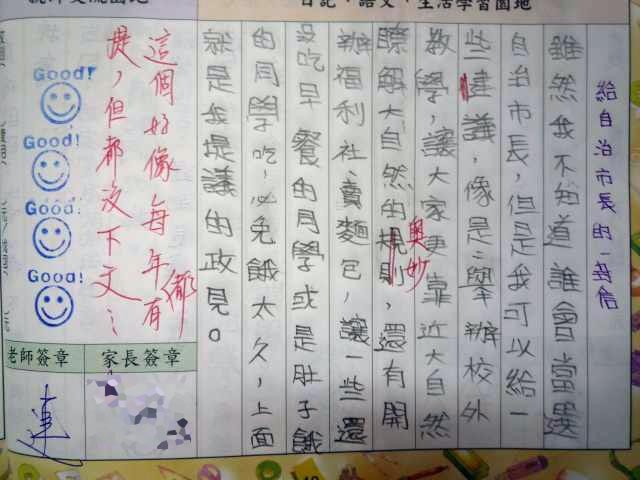 日記、語文、生活學習園地
給自治市長的一封信
雖然我不知道誰會當選
自治市長,但是我可以給一
些建議,像是:舉辦校外
教學,讓大家更靠近大自然
瞭解大自然的規則,還有開
奧妙
辦福利社,賣麵包,讓一些還
沒吃早餐的同學或是肚子餓
的同學吃,必免餓太久,上面
就是我提議的政見。
這個好像每年都有
提,但都沒下文…
Good!
Good!
Good!
Good!
家長簽章
老師簽章